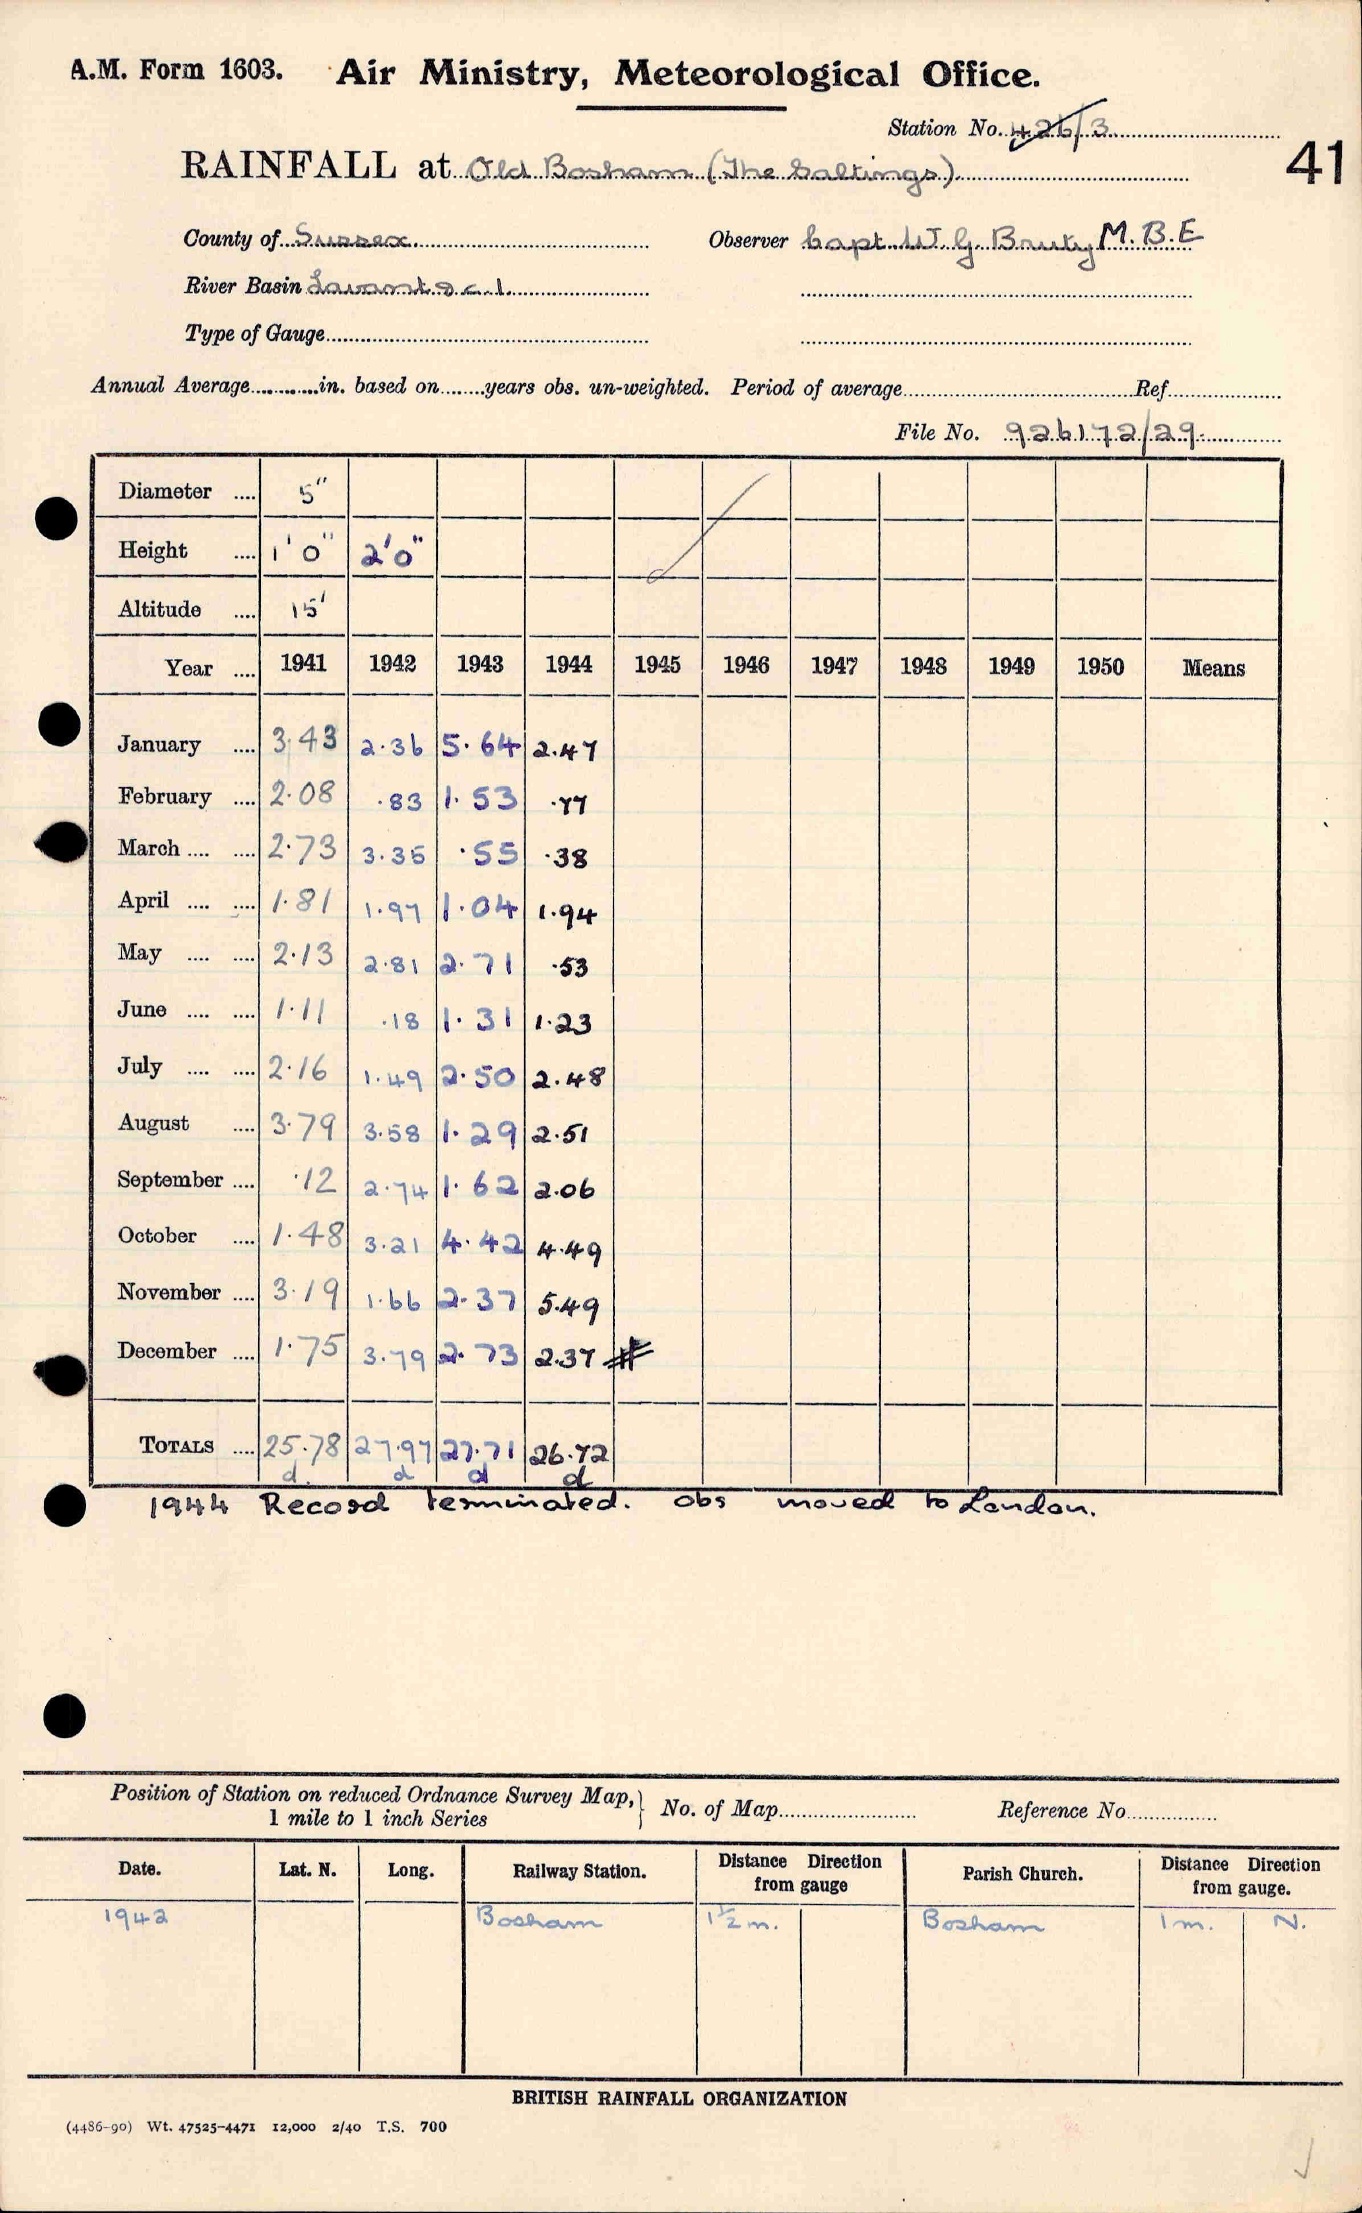 A.M. Form 1603. Air Ministry, Meteorological Office.
Station No. 426/3
41
RAINFALL at Old Bosham (The Saltings)
County of Sussex Observer Capt. W. G. Bruty M.B.E
River Basin Lavant & c.1.
Type of Gauge
Annual Average in. based on years obs. un-weighted. Period of average Ref
File No. 926172/29.
Diameter .... 5"
Height .... 1' 0" 2'0"
Altitude .... 15'
Year .... 1941 1942 1943 1944 1945 1946 1947 1948 1949 1950 Means
January .... 3.43 2.36 5.64 2.47
February .... 2.08 .83 1.53 .77
March .... .... 2.73 3.35 .55 .38
April .... .... 1.81 1.97 1.04 1.94
May .... .... 2.13 2.81 2.71 .53
June .... .... 1.11 .18 1.31 1.23
July .... .... 2.16 1.49 2.50 2.48
August .... 3.79 3.58 1.29 2.51
September .... .12 2.74 1.62 2.06
October .... 1.48 3.21 4.42 4.49
November .... 3.19 1.66 2.37 5.49
December .... 1.75 3.79 2.73 2.37
TOTALS .... 25.78 27.97 27.71 26.72
d. d d d
1944 Record terminated. obs moved to London.
Position of Station on reduced Ordnance Survey Map, } No. of Map Reference No
1 mile to 1 inch Series
Date. Lat. N. Long. Railway Station. Distance Direction from gauge Parish Church. Distance Direction from gauge.
1942 Bosham 1½ m. Bosham 1 m. N.
BRITISH RAINFALL ORGANIZATION
(4486-90) Wt. 47525-4471 12,000 2/40 T.S. 700